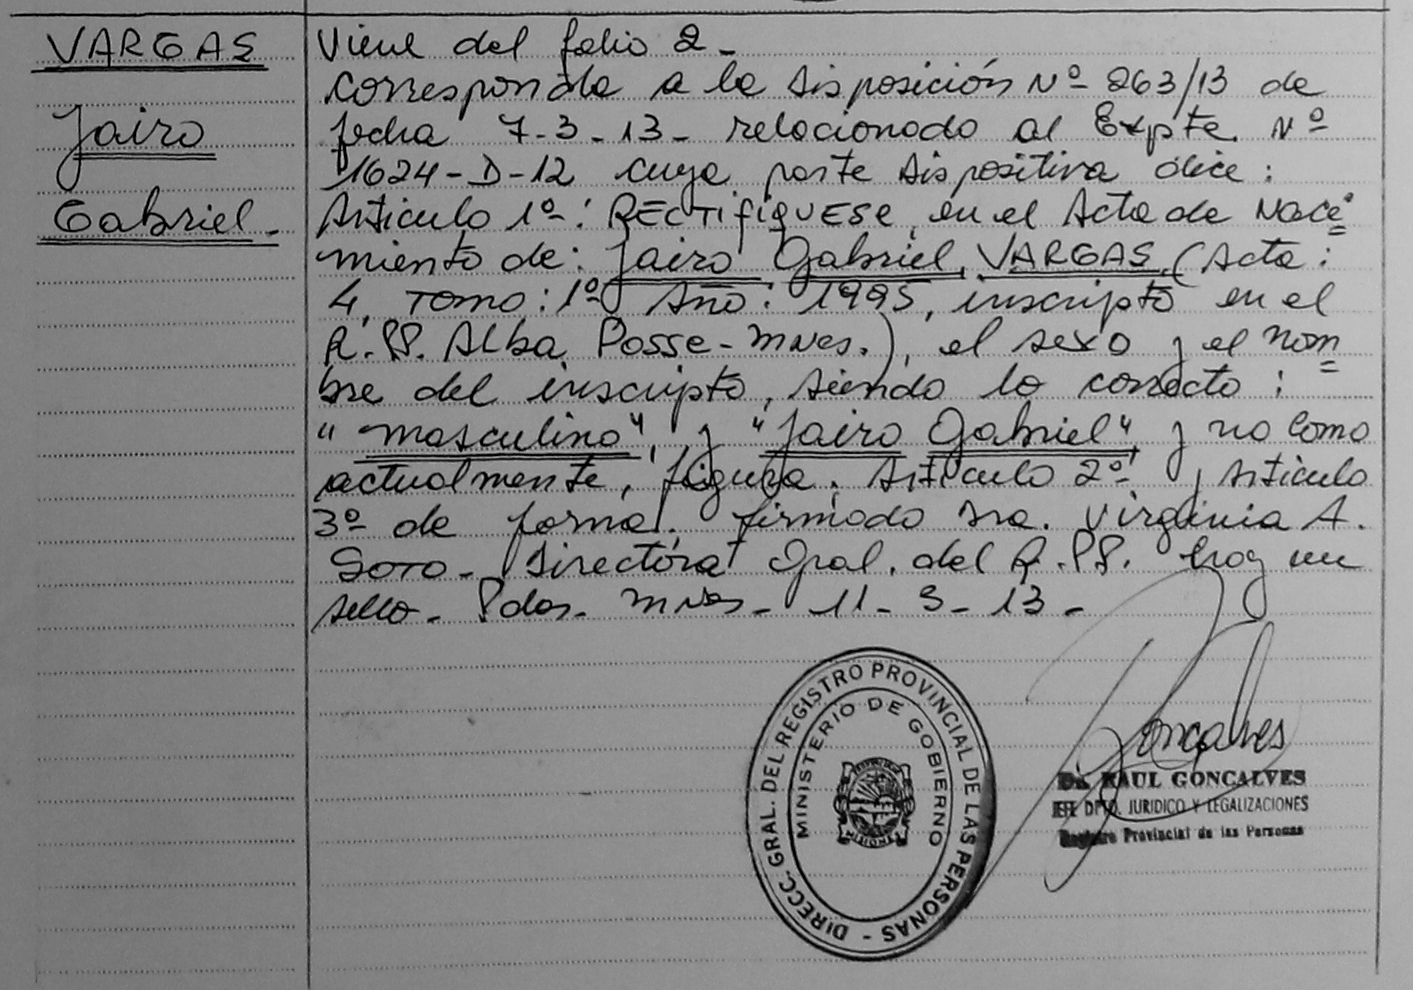 VARGAS
Jairo
Gabriel -
Viene del folio 2 -
corresponde a la disposición Nº 263/13 de
fecha 7-3-13- relacionado al Expte Nº
1624-D-12 cuya parte dispositiva dice:
Articulo 1º: RECTIFIQUESE, en el Acta de Naci=
miento de: Jairo Gabriel VARGAS (Acta:
4, Tomo: 1º Año: 1995, inscripto en el
R.PP. Alba Posse - Mnes.), el sexo y el nom=
bre del inscripto, siendo lo correcto:
"masculino", y "Jairo Gabriel", y no como
actualmente, figura. Articulo 2º y Articulo
3º de forma. firmado Sra. Virginia A.
Soto - Directora Gral. del R.PP. hay un
sello - Pdas. Mnes - 11-3-13 -
DIRECC. GRAL. DEL REGISTRO PROVINCIAL DE LAS PERSONAS -
MINISTERIO DE GOBIERNO
MISIONES
Goncalves
Dr. RAUL GONCALVES
JEFE DPTO. JURIDICO Y LEGALIZACIONES
Registro Provincial de las Personas